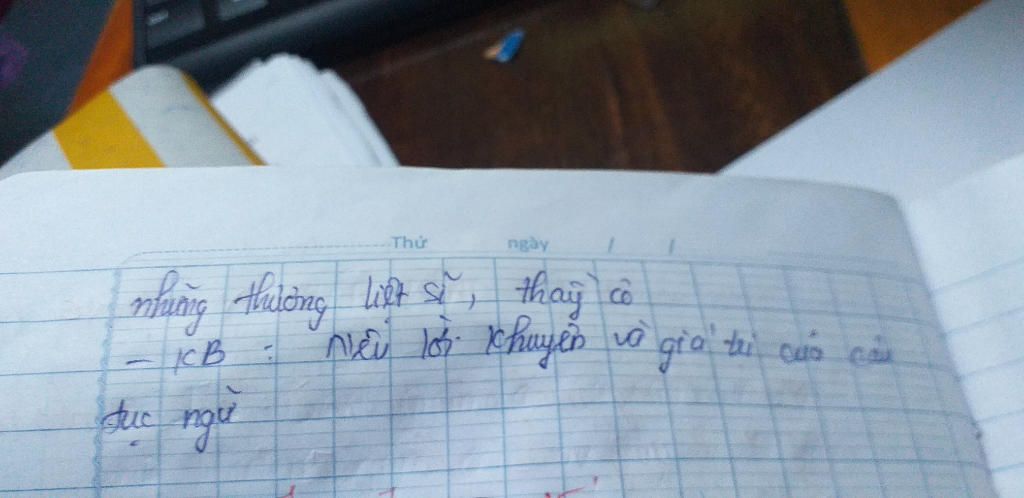 Thứ ngày / /
những thương liệt sĩ, thầy cô
- KB : nêu lời khuyên và giá trị của câu
tục ngữ